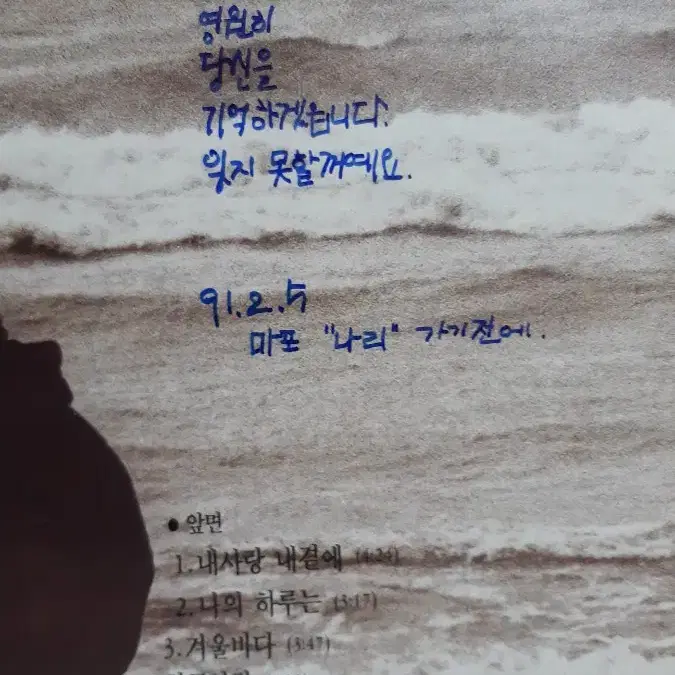 영원히
당신을
기억하겠읍니다.
잊지 못할꺼예요.
91.2.5
마포 "나리" 가기전에.
● 앞면
1. 내사랑 내곁에 (4:24)
2. 나의 하루는 (3:17)
3. 겨울바다 (3:47)